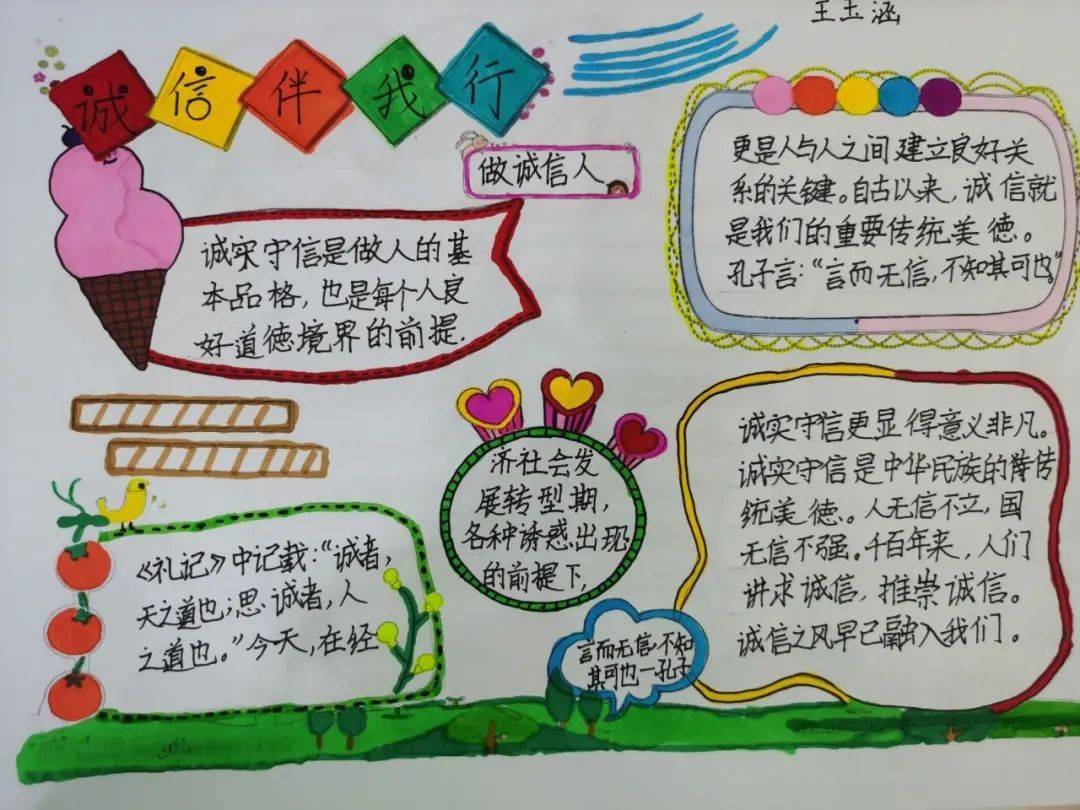 王玉涵
诚信伴我行
做诚信人
诚实守信是做人的基
本品格，也是每个人良
好道德境界的前提.
更是人与人之间建立良好关
系的关键。自古以来，诚信就
是我们的重要传统美德。
孔子言：“言而无信，不知其可也”
《礼记》中记载：“诚者，
天之道也；思诚者，人
之道也。”今天，在经
济社会发
展转型期，
各种诱惑出现
的前提下，
诚实守信更显得意义非凡。
诚实守信是中华民族的传
统美德。人无信不立，国
无信不强。千百年来，人们
讲求诚信，推崇诚信。
诚信之风早已融入我们。
言而无信，不知
其可也一孔子